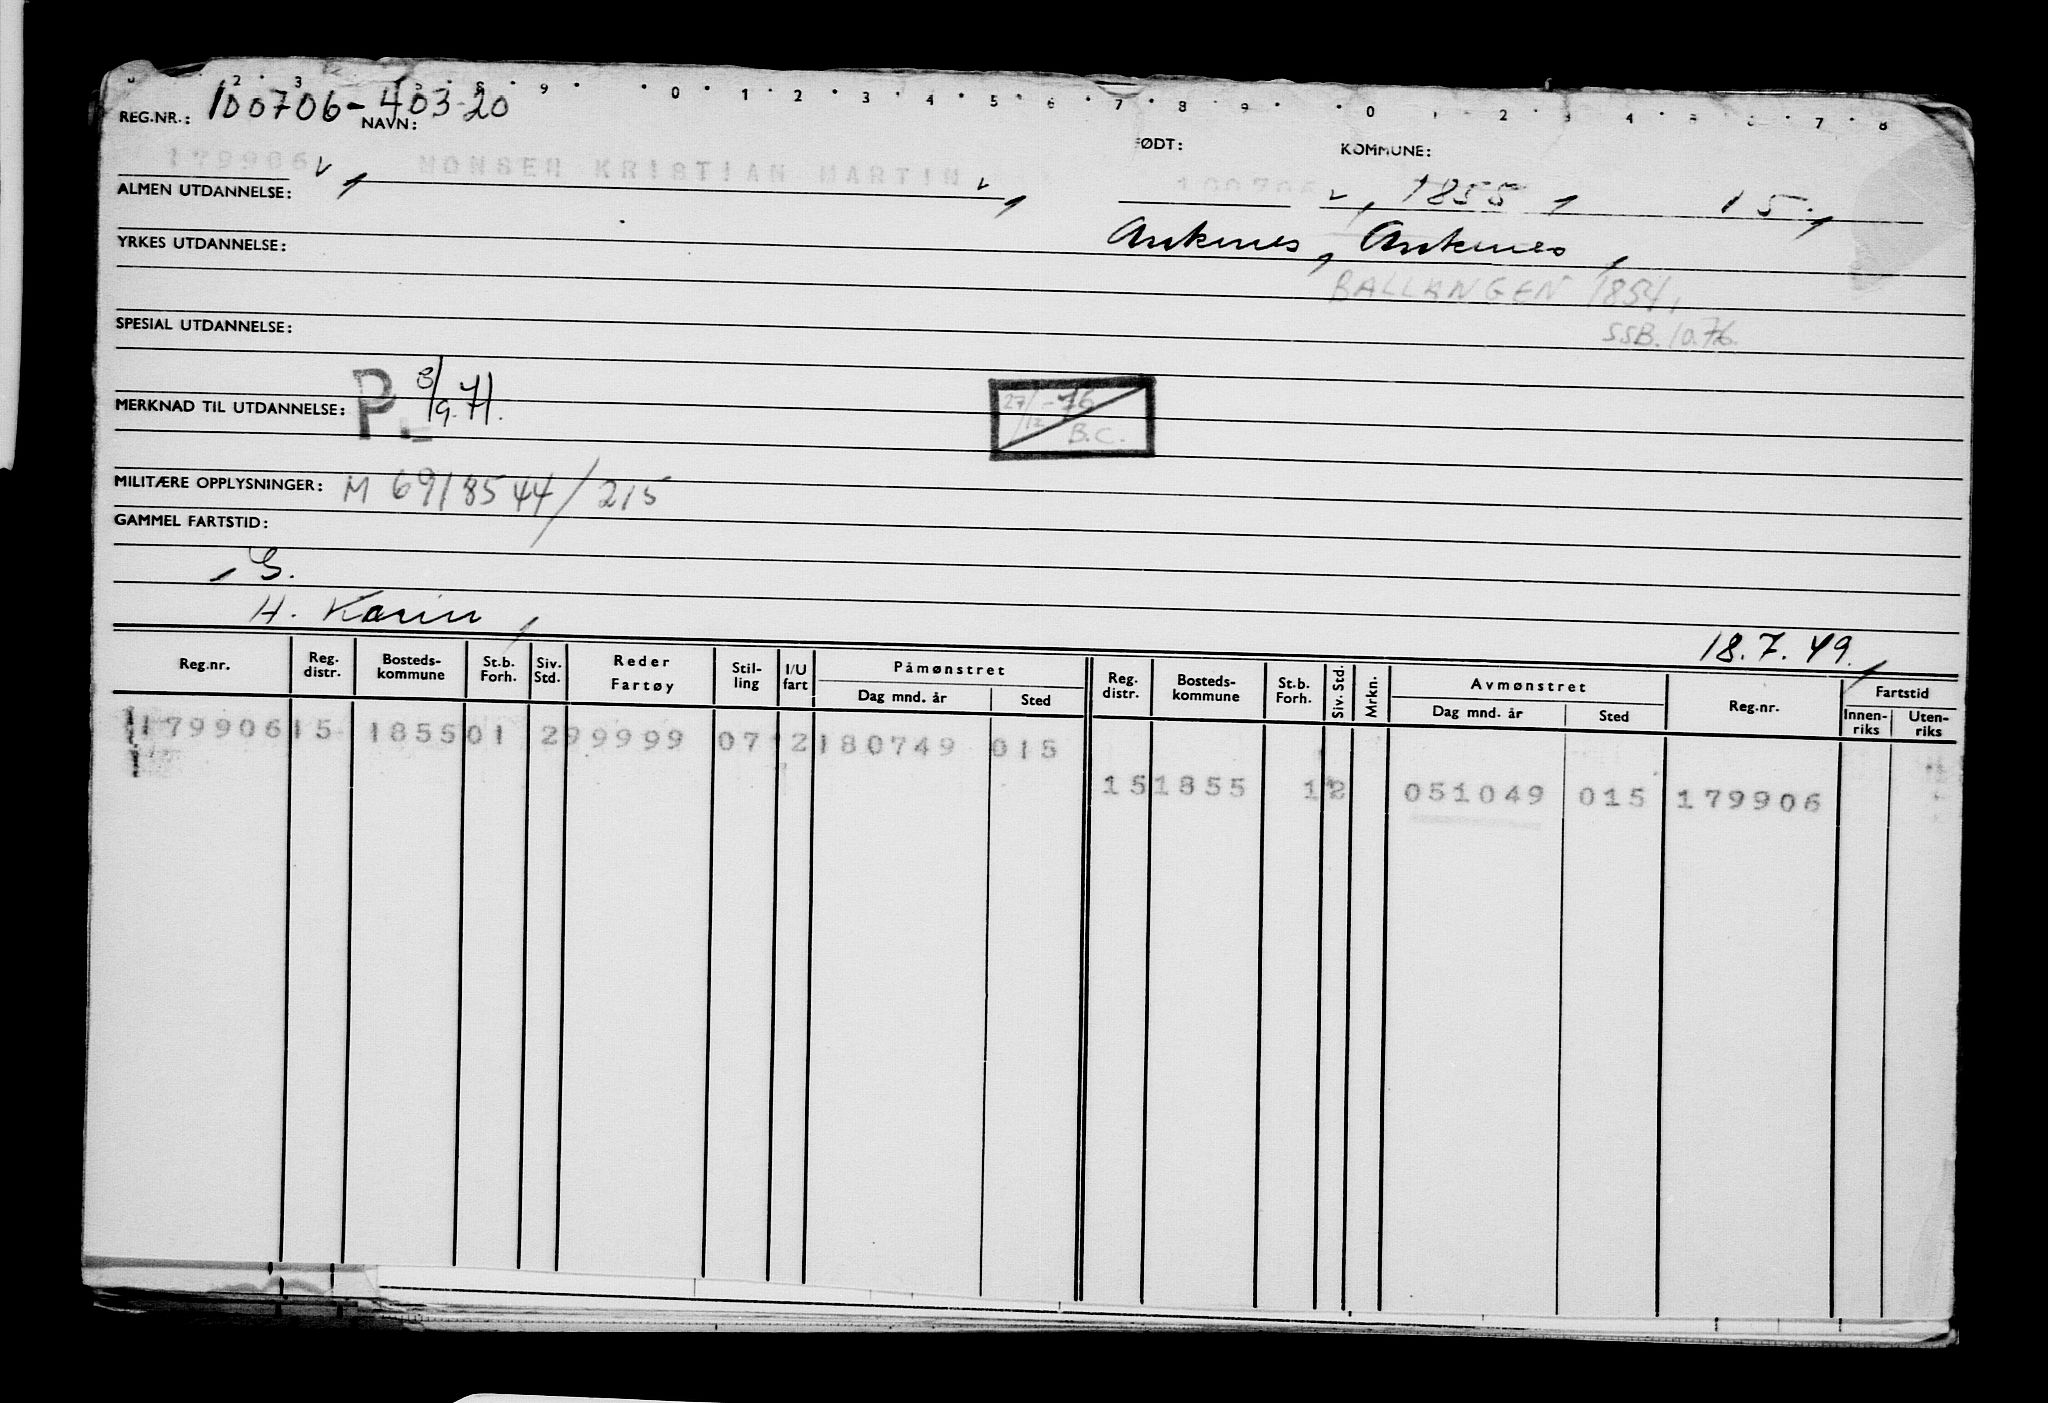 REG.NR.: 100706-403-20 NAVN: FØDT: KOMMUNE:
179906 KRISTIAN MARTIN 100706 1855, 15.,
ALMEN UTDANNELSE:
Ankenes, Ankenes,
YRKES UTDANNELSE:
BALLANGEN 1854,
SSB. 10.76.
SPESIAL UTDANNELSE:
MERKNAD TIL UTDANNELSE: P. 8/9.71.
27/12 -76
B.C.
MILITÆRE OPPLYSNINGER: M 6918544/215
GAMMEL FARTSTID:
, G.
H. Karin,
18.7.49.,
Reg.nr. Reg. distr. Bosteds-kommune St.b. Forh. Siv. Std. Reder Fartøy Stil-ling I/U fart Påmønstret Dag mnd. år Sted Reg. distr. Bosteds-kommune St.b. Forh. Siv. Std. Mrkn. Avmønstret Dag mnd. år Sted Reg.nr. Fartstid Innen-riks Uten-riks
179906 15 1855 01 2 99999 07 2 180749 015
15 1855 1 2 051049 015 179906